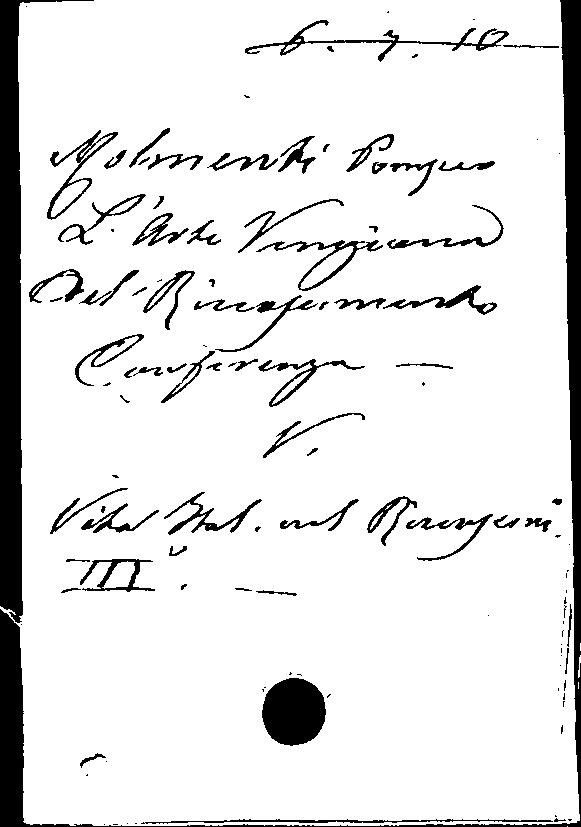 6. 7. 10
Molmenti Pompeo
L'Arte Veneziana
Del Rinascimento
Conferenza —
V.
Vita Ital. nel Rinascim.
III°. —